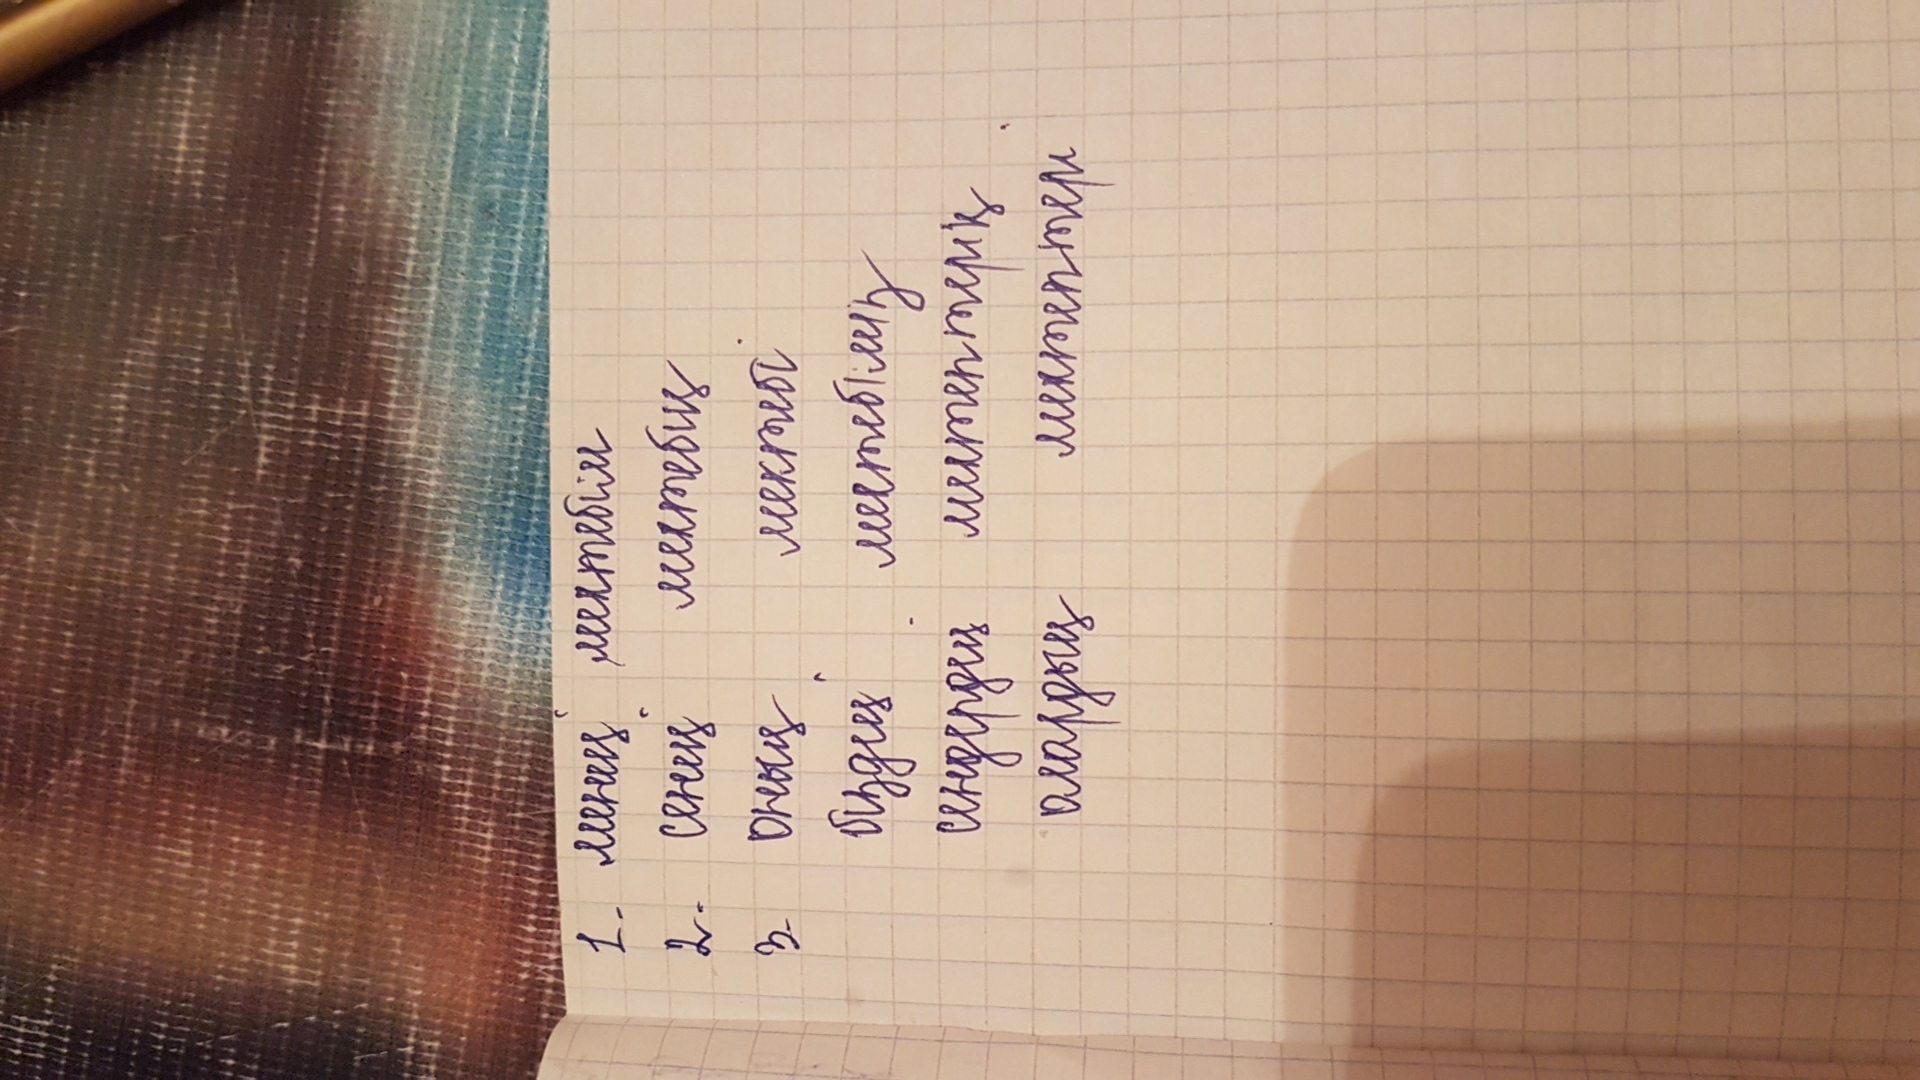 1. менің мектебім
2. сенің мектебиң
3. оның мектебі
біздің мектебіміз
сендердің мектептерің
олардың мектептері